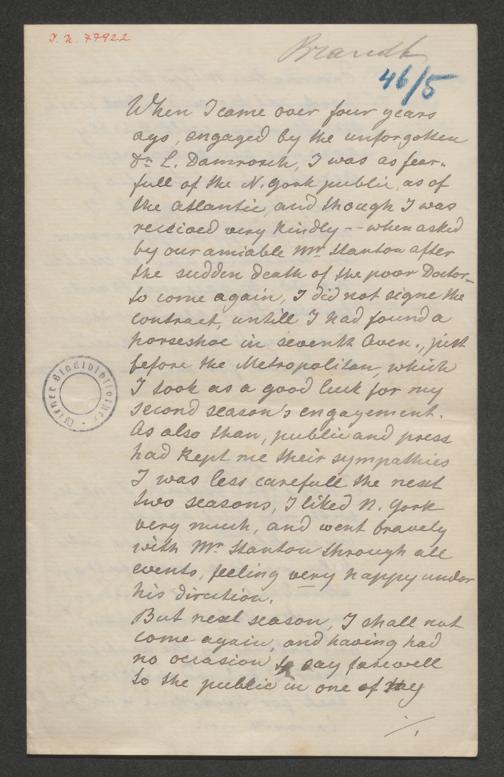 I. N. 77922
Brandt
46/5
When I came over four years
ago, engaged by the unforgotten
Dr L. Damrosch, I was as fear-
full of the N. York public, as of
the Atlantic, and though I was
received very kindly -- when asked
by our amiable Mr Stanton after
the sudden death of the poor Doctor -
to come again, I did not signe the
contract, untill I had found a
horseshoe in seventh Aven., just
before the Metropolitan, which
I took as a good luck for my
second season's engagement.
As also than, public and press
had kept me their sympathies
I was less carefull the next
two seasons, I liked N. York
very much, and went bravely
with Mr Stanton through all
events, feeling very happy under
his direction.
But next season, I shall not
come again, and having had
no occasion to say farewell
to the public in one of my
Wiener Stadtbibliothek